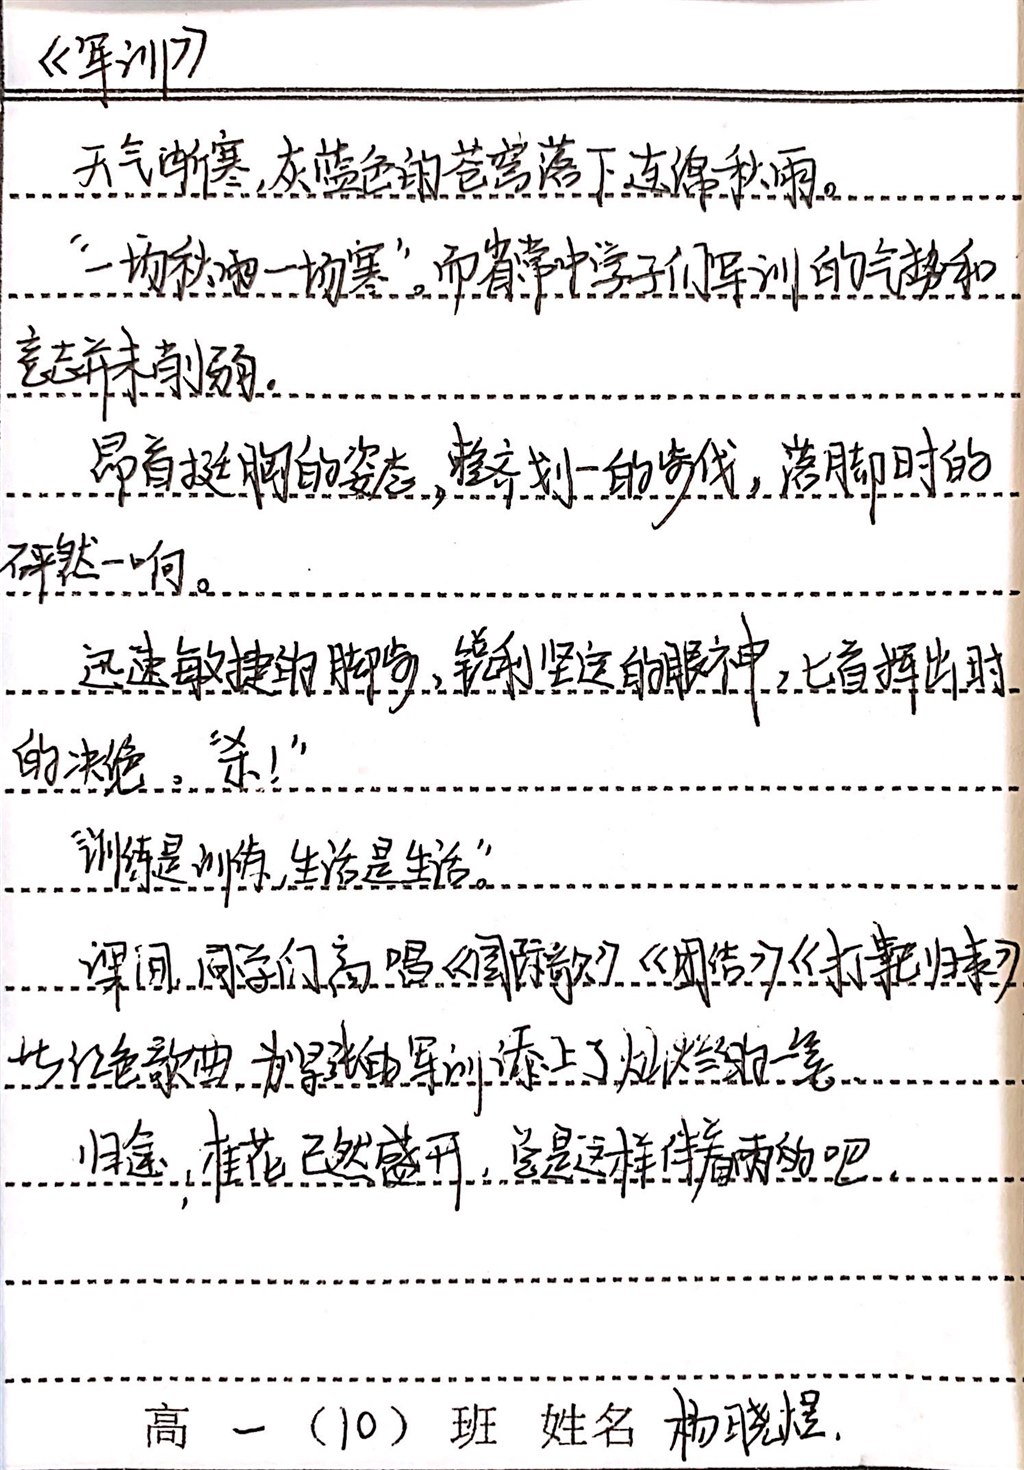 《军训》
天气渐寒,灰蓝色的苍穹落下连绵秋雨。
“一场秋雨一场寒”。而省常中学子们军训的气势和
意志并未削弱.
昂首挺胸的姿态,整齐划一的步伐,落脚时的
砰然一响。
迅速敏捷的脚步,锐利坚定的眼神,匕首挥出时
的决绝。“杀!”
“训练是训练,生活是生活”。
课间,同学们高唱《国际歌》《团结》《打靶归来》
红色歌曲,为紧张的军训添上了灿烂的一笔.
归途,桂花已然盛开,总是这样伴着雨的吧.
高一(10)班 姓名 杨晓煜.